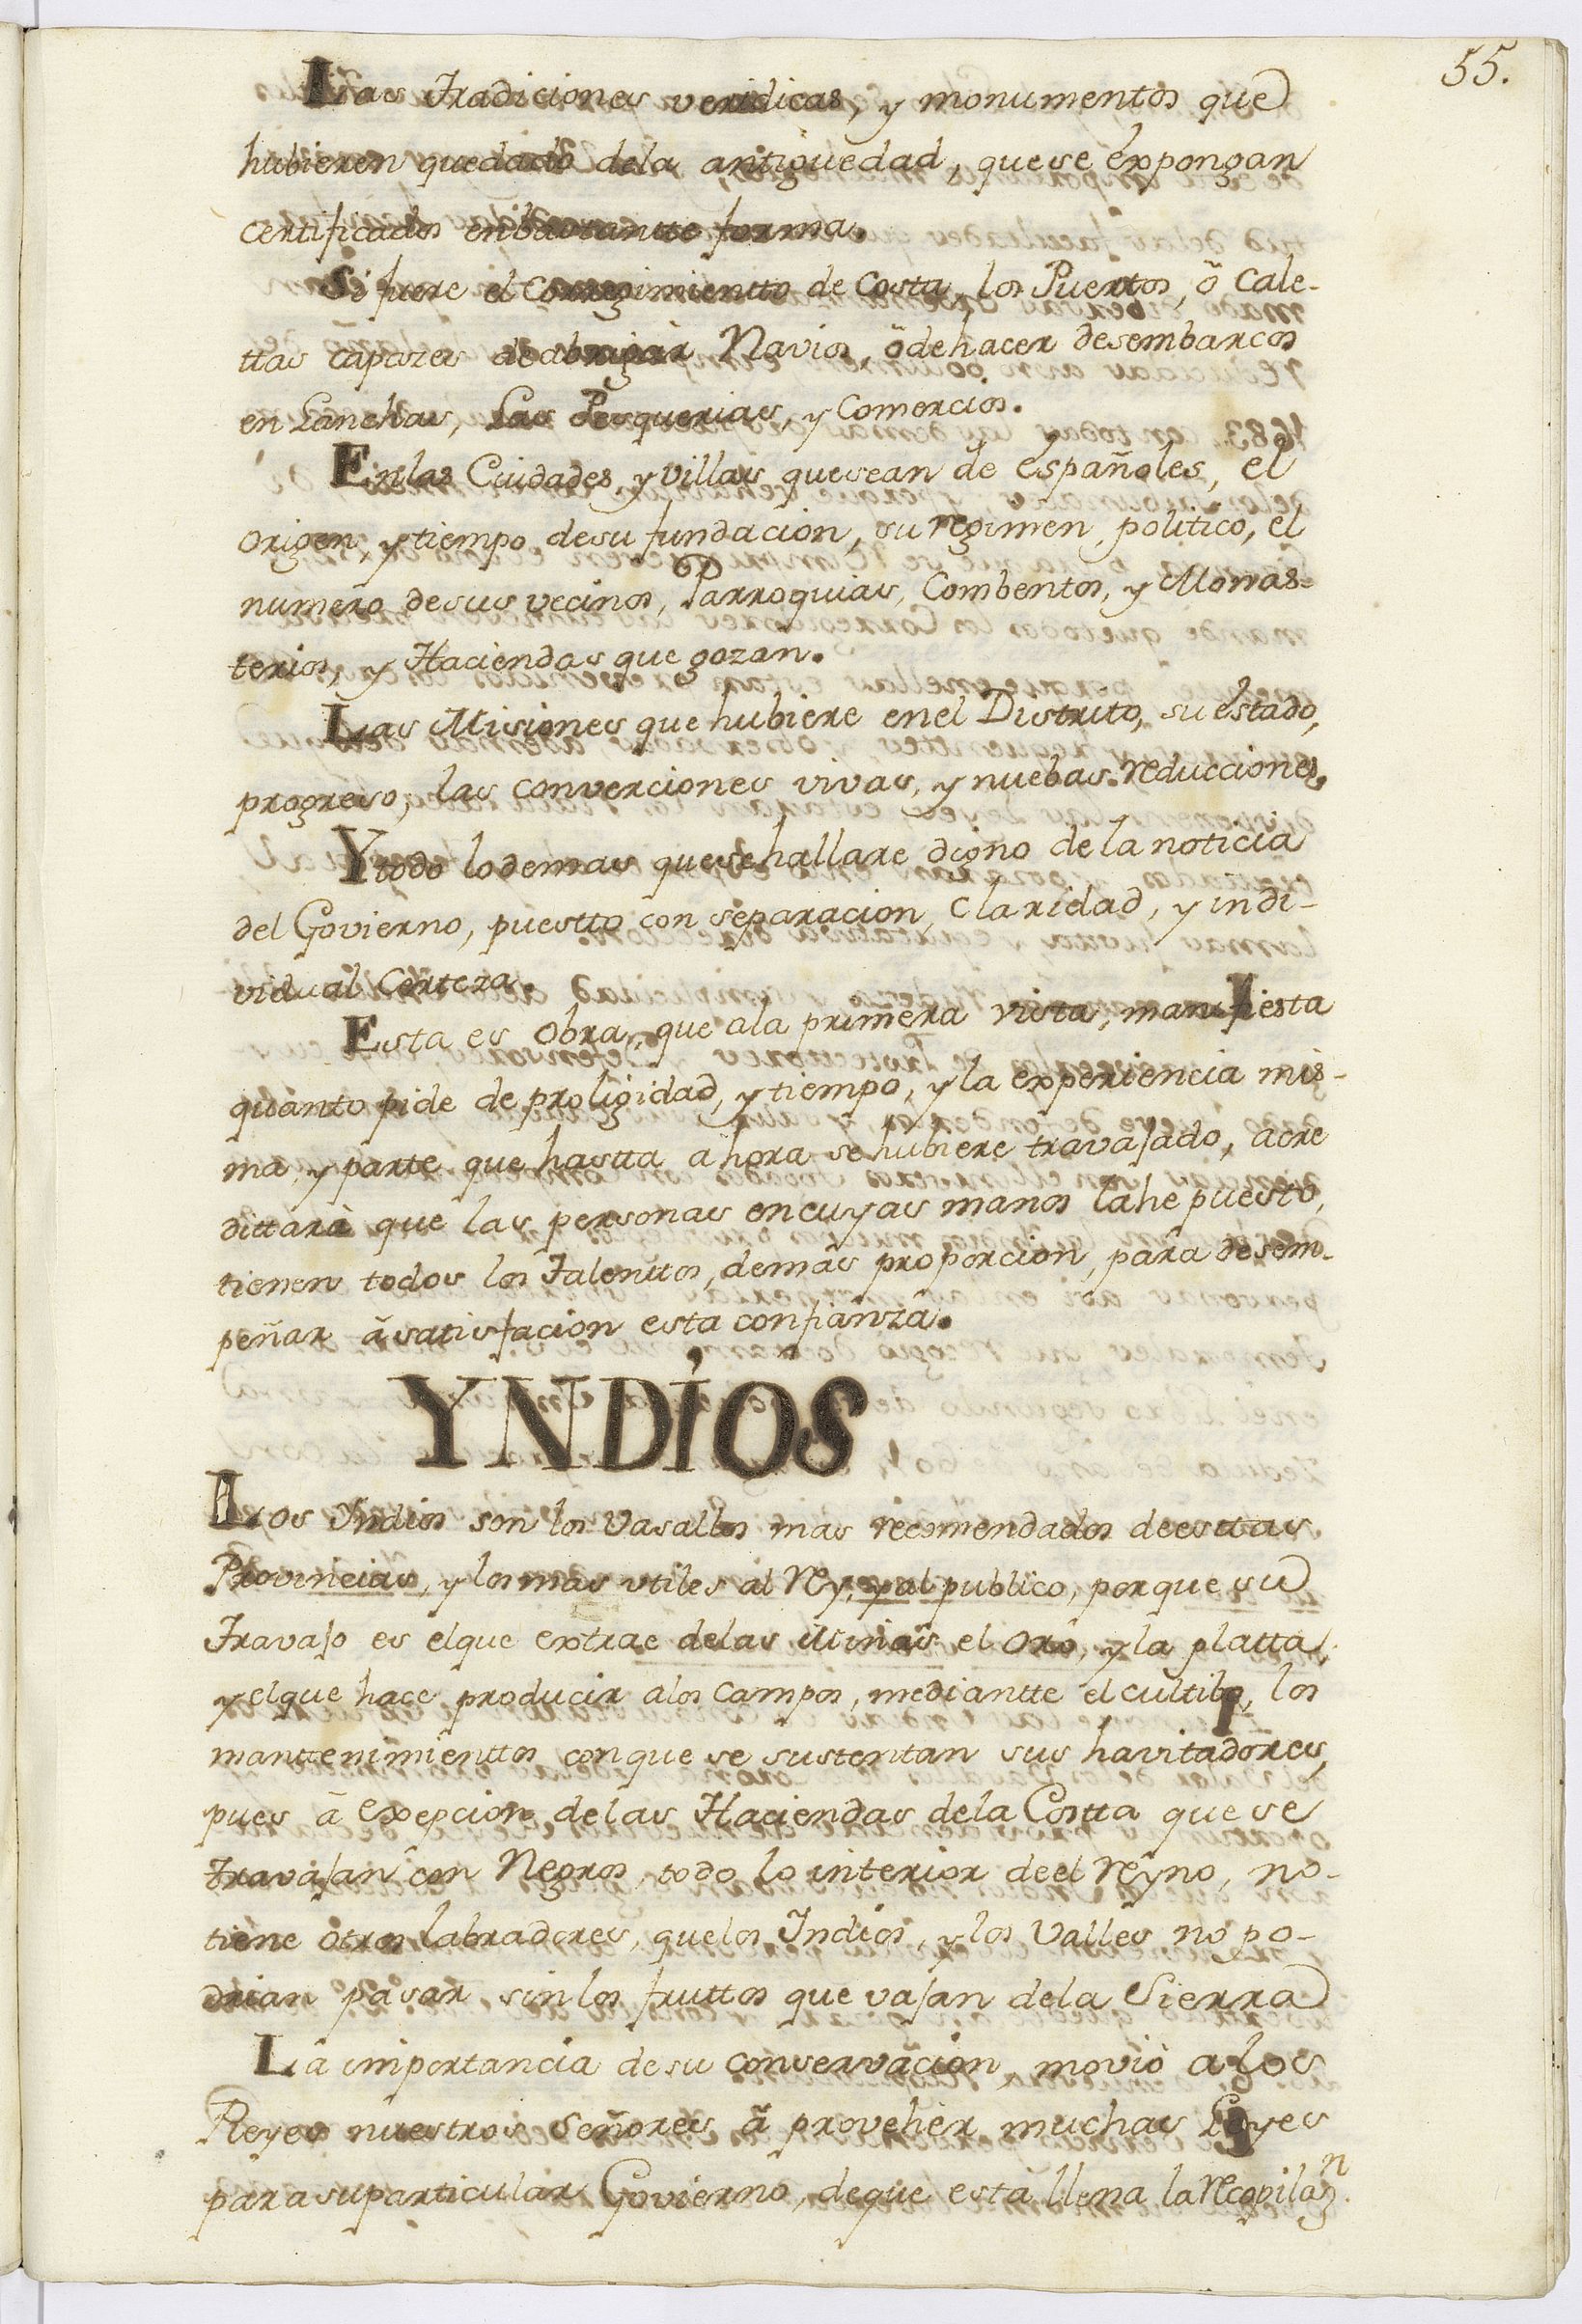 55.
Las Tradiciones veridicas, y monumentos que
hubieren quedado dela antiguedad, quese expongan
certificados enbastantte forma.
Si fuere el Corregimientto de Costa, los Puertos, ô Cale-
ttas capazes deabrigar Navios, ôdehacer desembarcos
en Lanchas, Las Pesquerias, y Comercios.
Enlas Ciudades, y Villas quesean de españoles, el
origen, y tiempo desu fundacion, su regimen politico, el
numero desus vecinos, Parroquias, Combentos, y Monas-
terios, y Haciendas que gozan.
Las Misiones que hubiere enel Distrito, su estado,
progreso, las converciones vivas, y nuebas reducciones.
Y todo lodemas quesehallare digno de la noticia
del Govierno, puestto con separacion, claridad, y indi-
vidual Certeza.
Esta es obra, que ala primera vista, manifiesta
quanto pide de proligidad, y tiempo, y la experiencia mis-
ma, y parte que hastta ahora se hubiere travajado, acre
dittará que las personas encuyas manos lahe puesto,
tienen todos los Talenttos, demás proporcion, para desem-
peñar âsatisfacion esta confianza.
YNDÍOS
Los Yndios son los Vasallos mas recomendados deesttas
Provincias, y los mas utiles al Rey, y al publico, porque su
Travajo es elque extrae delas Minas el oro, y la platta,
y elque hace producir alos Campos, mediantte el cultibo, los
manttenimienttos conque se sustentan sus havitadores,
pues â exepcion delas Haciendas dela Costta que se
travajan con Negros, todo lo interior deel Reyno, no-
tiene otros labradores, quelos Indios, y los Valles no po-
drian pasar sin los fruttos que vajan dela Sierra
La importancia desu conservacion, movió alos
Reyes nuestros Señores â provehèr muchas Leyes
para suparticular Govierno, deque està llena la Recopilaz.n